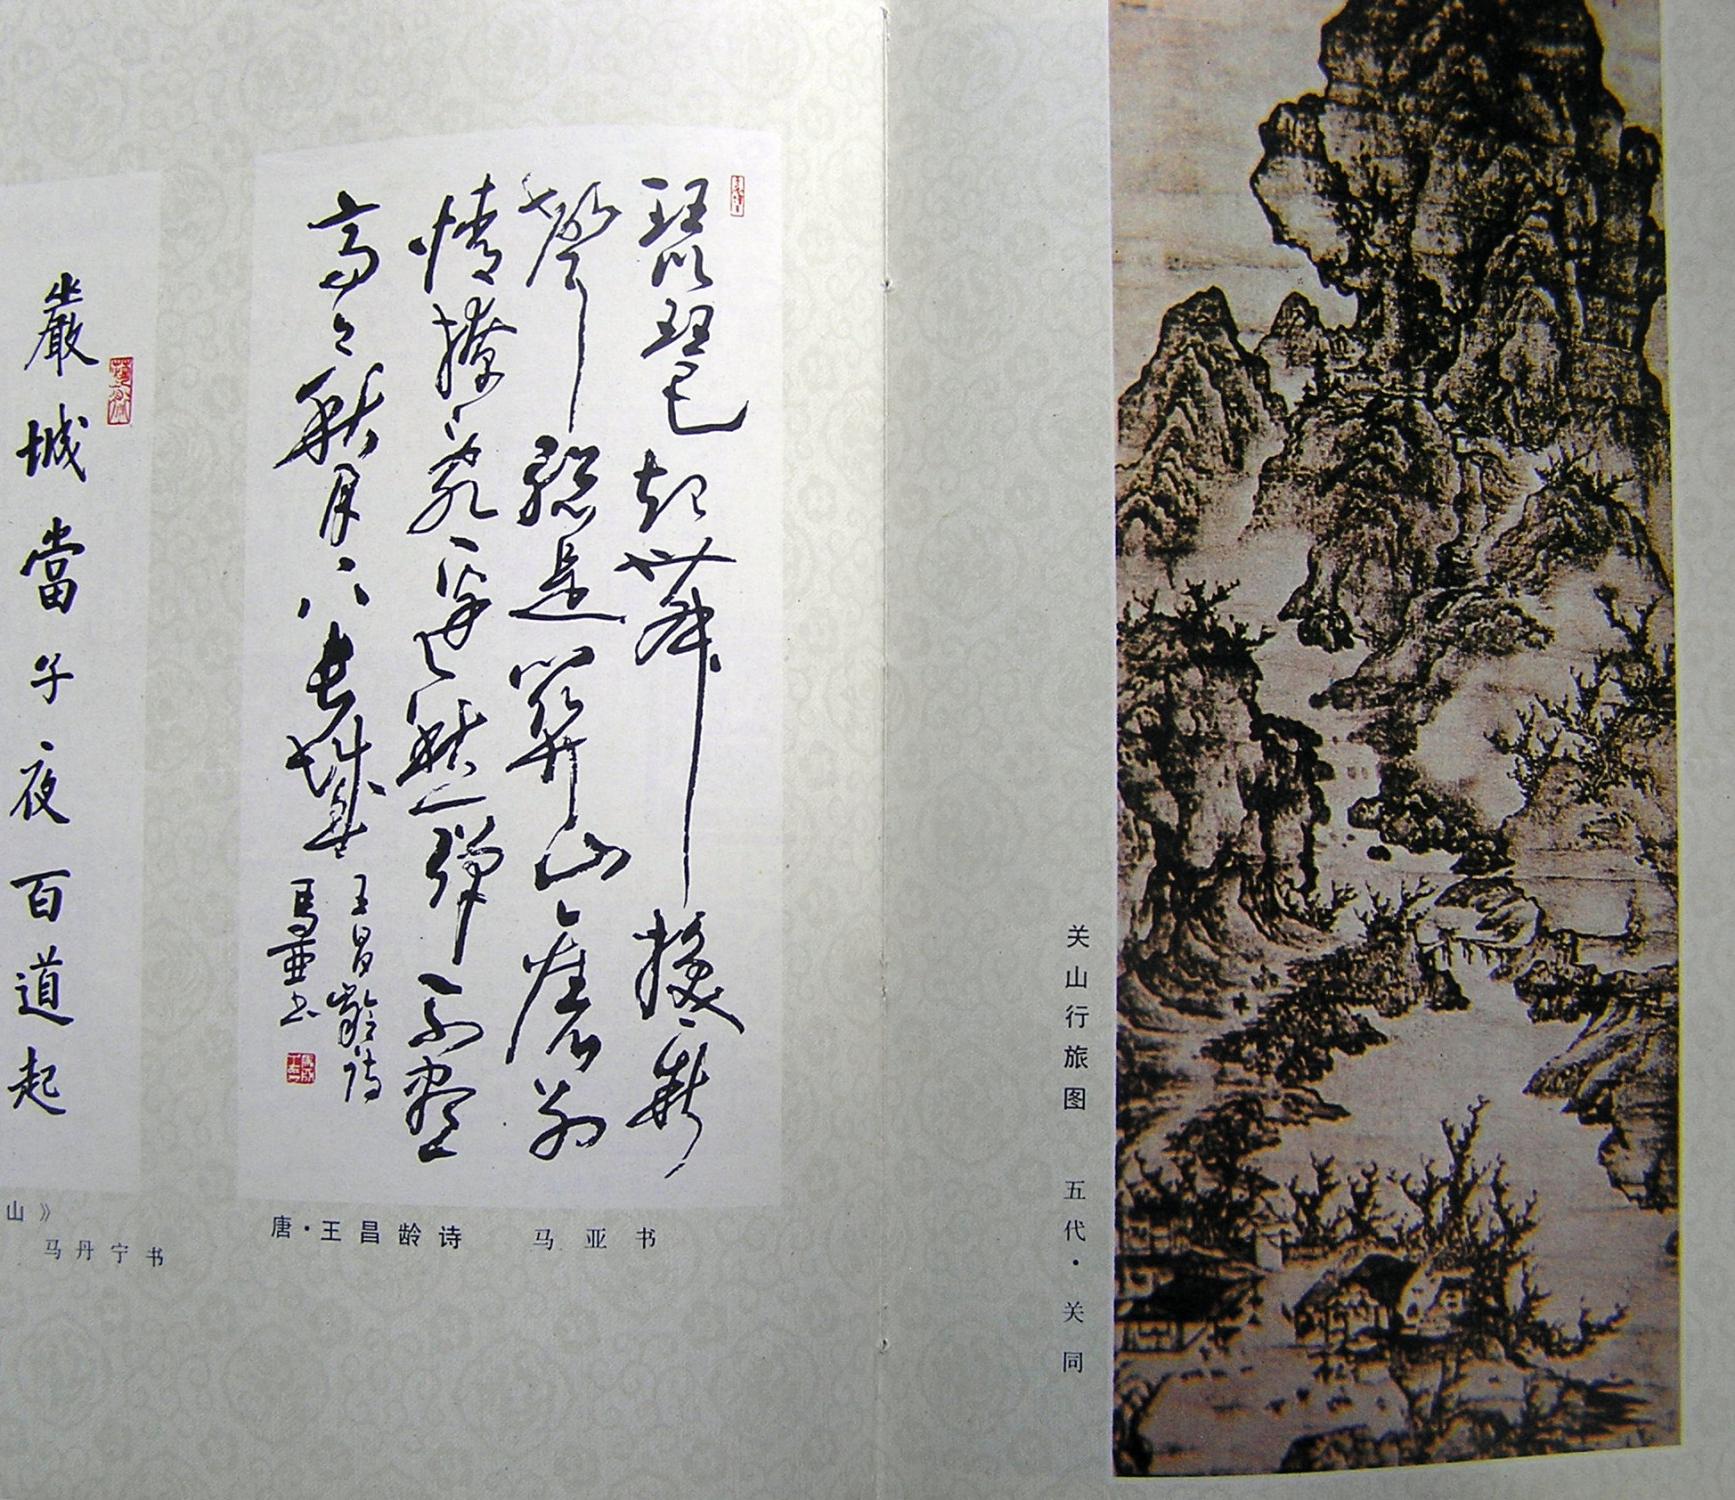 关山行旅图 五代·关同
琵琶起舞换新
声総是关山离别
情撩乱边愁弹不尽
高々秋月下长城
王昌龄诗
马亚书
唐·王昌龄诗 马亚书
嚴城當子夜百道起
山》
马丹宁书